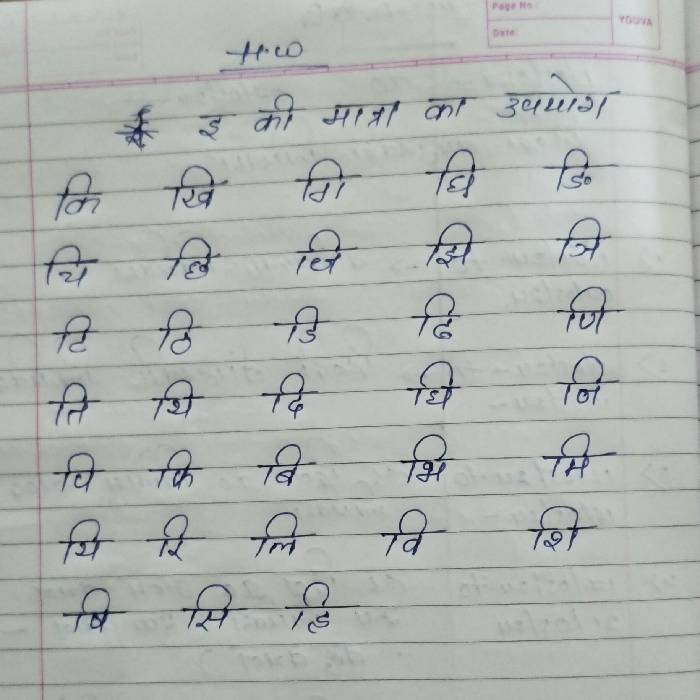 Page No.:
YOUVA
Date:
H.W
इ की मात्रा का उपयोग
कि खि गि घि ङि
चि छि जि झि ञि
टि ठि डि ढि णि
ति थि दि धि नि
पि फि बि भि मि
यि रि लि वि शि
षि सि हि